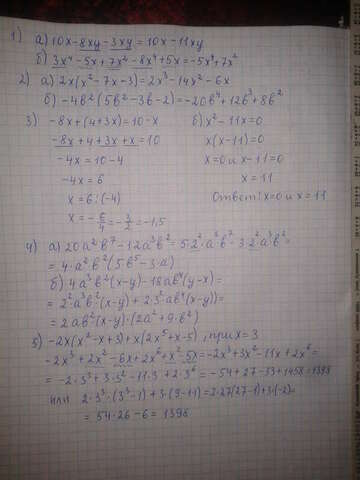 1) а) 10x - 8xy - 3xy = 10x - 11xy
б) 3x⁴ - 5x + 7x² - 8x⁴ + 5x = -5x⁴ + 7x²
2) а) 2x(x² - 7x - 3) = 2x³ - 14x² - 6x
б) -4b²(5b² - 3b - 2) = -20b⁴ + 12b³ + 8b²
3) -8x + (4 + 3x) = 10 - x
-8x + 4 + 3x + x = 10
-4x = 10 - 4
-4x = 6
x = 6 : (-4)
x = -6/4 = -3/2 = -1,5
б) x² - 11x = 0
x(x - 11) = 0
x = 0 и x - 11 = 0
x = 11
Ответ: x = 0 и x = 11
4) а) 20a²b⁷ - 12a³b² = 5·2²·a²b⁷ - 3·2²·a³b² =
= 4·a²b²(5b⁵ - 3·a)
б) 4a³b²(x-y) - 18ab⁴(y-x) =
= 2²a³b²(x-y) + 2·3²ab⁴(x-y) =
= 2ab²(x-y)·(2a² + 9b²)
5) -2x(x² - x + 3) + x(2x⁵ + x - 5), при x = 3
-2x³ + 2x² - 6x + 2x⁶ + x² - 5x = -2x³ + 3x² - 11x + 2x⁶ =
= -2·3³ + 3·3² - 11·3 + 2·3⁶ = -54 + 27 - 33 + 1458 = 1398
или 2·3³·(3³ - 1) + 3·(9 - 11) = 2·27(27 - 1) + 3·(-2) =
= 54·26 - 6 = 1398